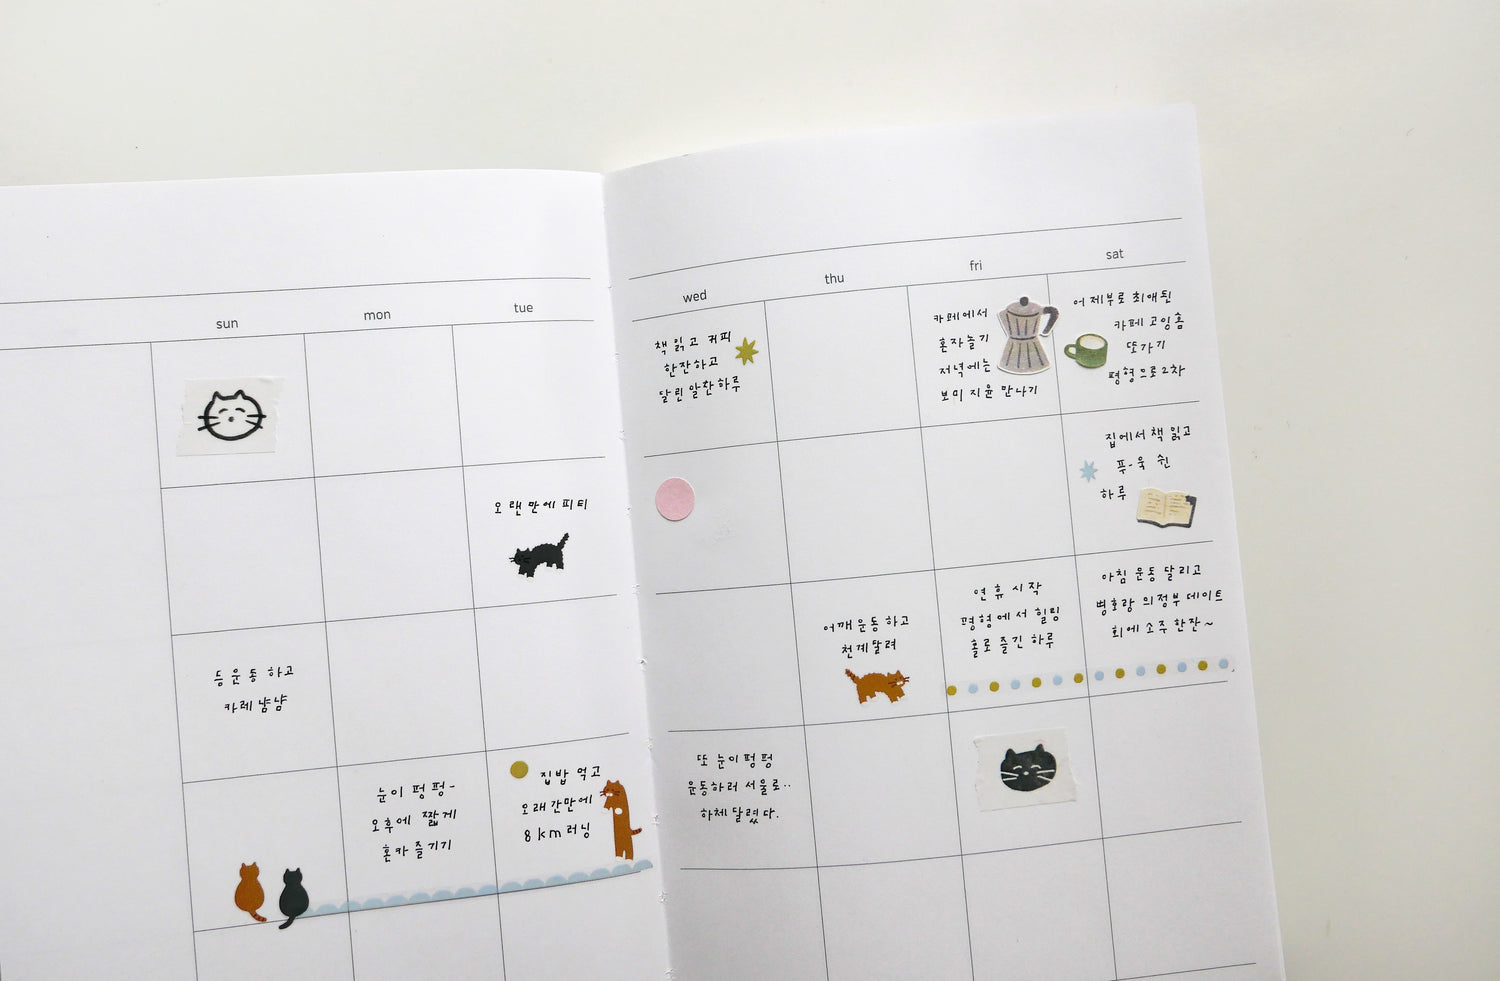 sun
mon
tue
wed
thu
fri
sat
책 읽고 커피
한잔하고
달린 알찬하루
카페에서
혼자놀기
저녁에는
보미 지윤 만나기
어제부로 최애된
카페 고잉홈
또가기
평형으로2차
오랜만에 피티
집에서 책 읽고
푸-욱 쉰
하루
등운동 하고
카레냠냠
어깨운동 하고
천계달려
연휴시작
평형에서 힐링
홀로 즐긴 하루
아침 운동 달리고
병호랑 의정부 데이트
회에 소주 한잔~
눈이 펑펑-
오후에 짧게
혼카즐기기
집밥 먹고
오래간만에
8km러닝
또 눈이펑펑
운동하러 서울로..
하체달렸다.